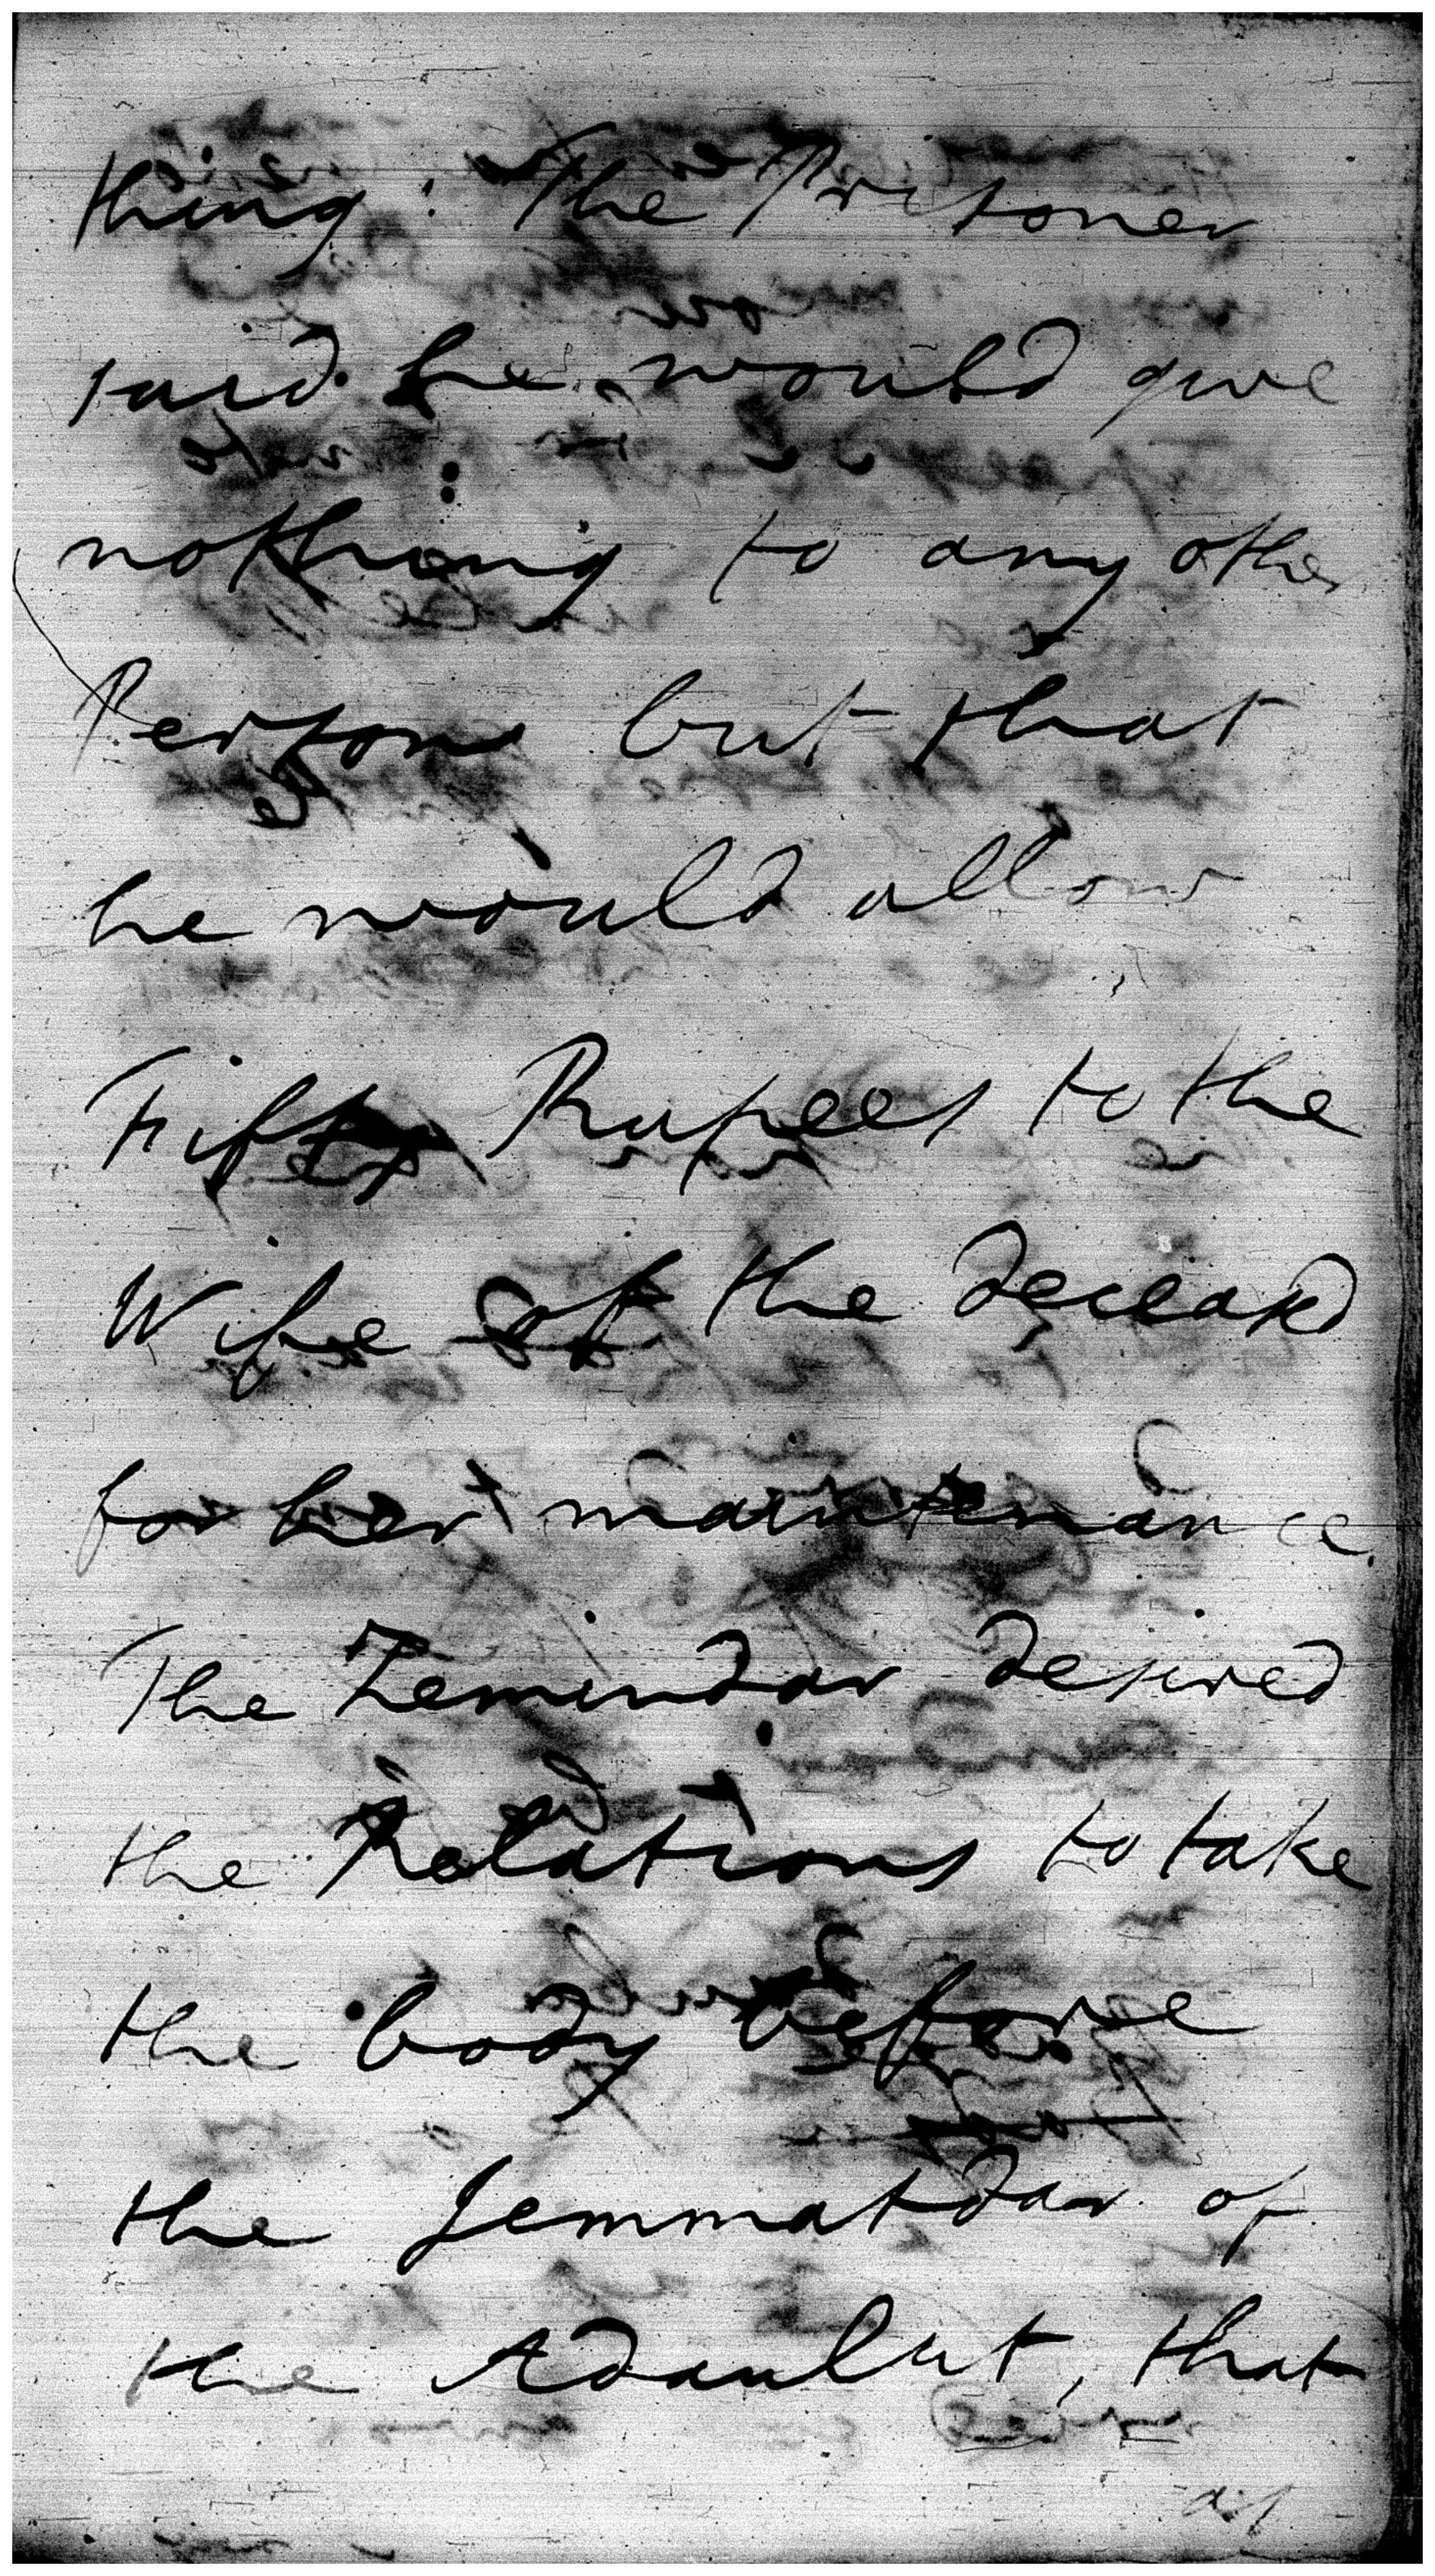 thing: The Prisoner
said he would give
nothing to any other
Person but that
he would allow
Fifty Rupees to the
Wife of the deceasd
for her maintenance.
The Zemindar desired
the Relations to take
the body before
the Jemmatdar of
the Adaulut, that
as